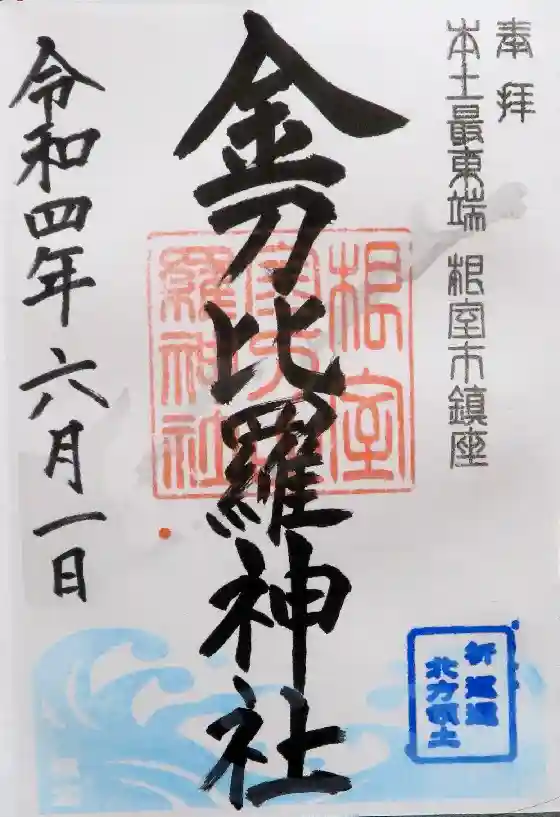 奉拝
本土最東端 根室市鎮座
金刀比羅神社
令和四年六月一日
根室
金刀比
羅神社
祈返還
北方領土